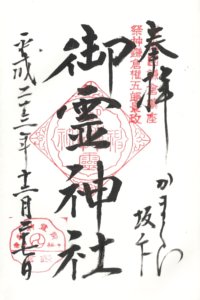 奉拝
かまくら
坂ノ下
祭神鎌倉権五郎景政
御霊神社
平成二十三年十二月二十七日